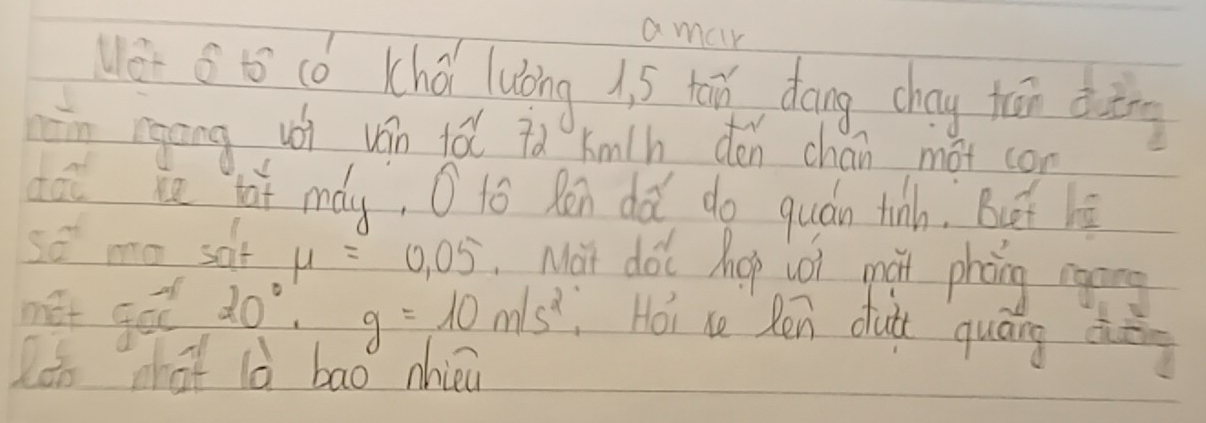 a max
Một ô tô có khối lượng 1,5 tấn đang chạy trên đường
nằm ngang với vận tốc 72 km/h đến chân một con
dốc xe tắt máy. Ô tô lên dốc do quán tính. Biết hệ
số ma sát µ = 0,05. Mặt dốc hợp với mặt phẳng ngang
một góc 20°. g = 10 m/s². Hỏi xe lên được quãng đường
lớn nhất là bao nhiêu